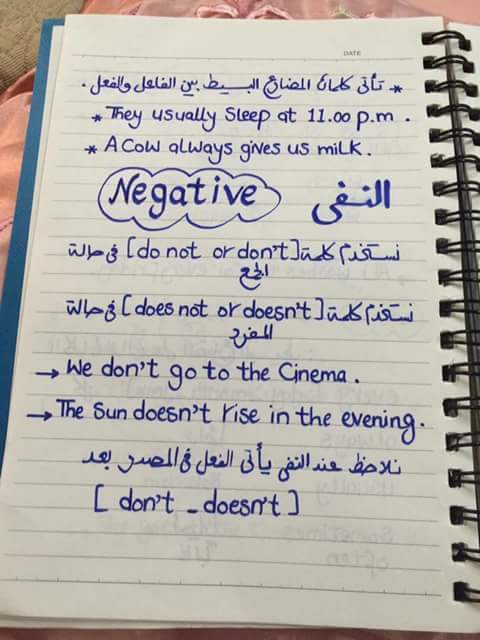 DATE
* تأتى كلمات المضارع البسيط بين الفاعل والفعل .
* They usually sleep at 11.00 p.m .
* A cow always gives us milk .
Negative النفى
نستخدم كلمة [do not or don't] فى حالة
الجمع
نستخدم كلمة [does not or doesn't] فى حالة
المفرد
→ We don't go to the Cinema .
→ The Sun doesn't rise in the evening .
نلاحظ عند النفى يأتى الفعل فى المصدر بعد
[ don't _ doesn't ]